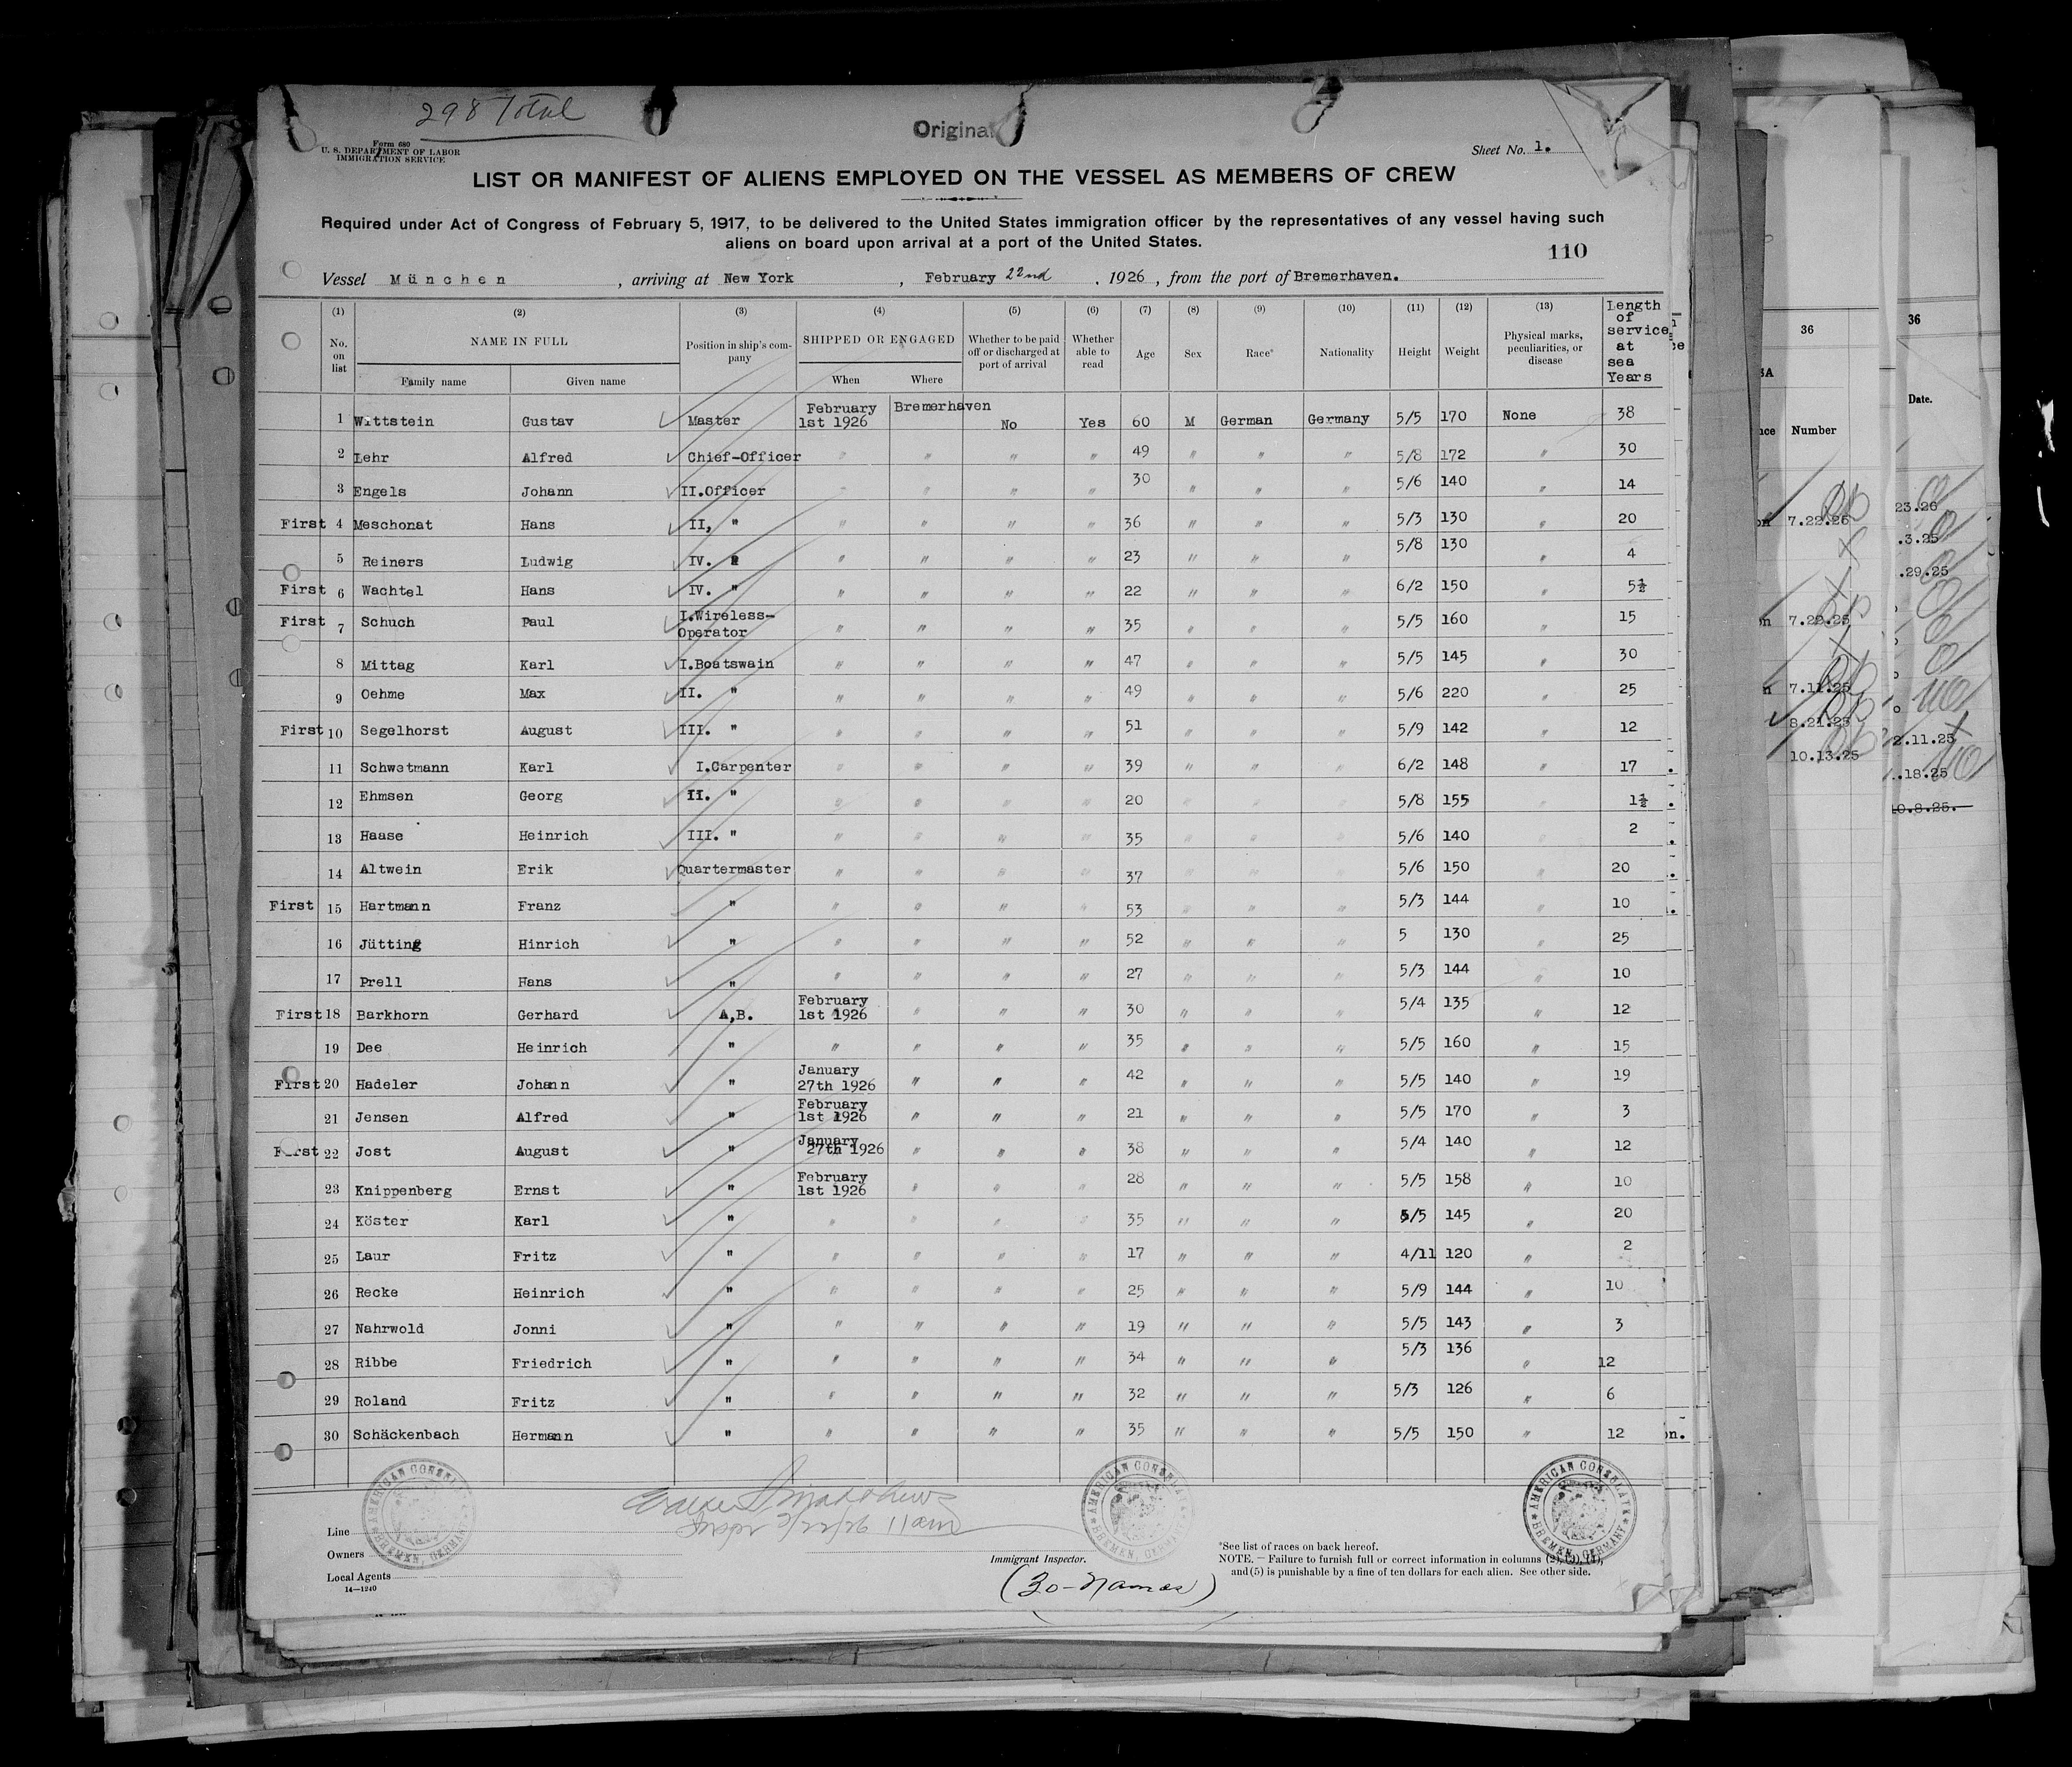 298 Total
Original
Form 680
U. S. DEPARTMENT OF LABOR
IMMIGRATION SERVICE
Sheet No. 1.
LIST OR MANIFEST OF ALIENS EMPLOYED ON THE VESSEL AS MEMBERS OF CREW
Required under Act of Congress of February 5, 1917, to be delivered to the United States immigration officer by the representatives of any vessel having such
aliens on board upon arrival at a port of the United States.
110
Vessel München , arriving at New York , February 22nd , 1926 , from the port of Bremerhaven.
(1) (2) (3) (4) (5) (6) (7) (8) (9) (10) (11) (12) (13) Length of service at sea Years
No. on list NAME IN FULL Family name Given name Position in ship's company SHIPPED OR ENGAGED When Where Whether to be paid off or discharged at port of arrival Whether able to read Age Sex Race* Nationality Height Weight Physical marks, peculiarities, or disease
1 Wittstein Gustav Master February 1st 1926 Bremerhaven No Yes 60 M German Germany 5/5 170 None 38
2 Lehr Alfred Chief-Officer " " " " 49 " " " 5/8 172 " 30
3 Engels Johann II.Officer " " " " 30 " " " 5/6 140 " 14
First 4 Meschonat Hans II, " " " " " 36 " " " 5/3 130 " 20
5 Reiners Ludwig IV. " " " " " 23 " " " 5/8 130 " 4
First 6 Wachtel Hans IV. " " " " " 22 " " " 6/2 150 " 5½
First 7 Schuch Paul I.Wireless-Operator " " " " 35 " " " 5/5 160 " 15
8 Mittag Karl I.Boatswain " " " " 47 " " " 5/5 145 " 30
9 Oehme Max II. " " " " " 49 " " " 5/6 220 " 25
First 10 Segelhorst August III. " " " " " 51 " " " 5/9 142 " 12
11 Schwetmann Karl I.Carpenter " " " " 39 " " " 6/2 148 " 17
12 Ehmsen Georg II. " " " " " 20 " " " 5/8 155 " 1½
13 Haase Heinrich III. " " " " " 35 " " " 5/6 140 " 2
14 Altwein Erik Quartermaster " " " " 37 " " " 5/6 150 " 20
First 15 Hartmann Franz " " " " " 53 " " " 5/3 144 " 10
16 Jütting Hinrich " " " " " 52 " " " 5 130 " 25
17 Prell Hans " " " " " 27 " " " 5/3 144 " 10
First 18 Barkhorn Gerhard A,B. February 1st 1926 " " " 30 " " " 5/4 135 " 12
19 Dee Heinrich " " " " " 35 " " " 5/5 160 " 15
First 20 Hadeler Johann " January 27th 1926 " " " 42 " " " 5/5 140 " 19
21 Jensen Alfred " February 1st 1926 " " " 21 " " " 5/5 170 " 3
First 22 Jost August " January 27th 1926 " " " 38 " " " 5/4 140 " 12
23 Knippenberg Ernst " February 1st 1926 " " " 28 " " " 5/5 158 " 10
24 Köster Karl " " " " " 35 " " " 5/5 145 " 20
25 Laur Fritz " " " " " 17 " " " 4/11 120 " 2
26 Recke Heinrich " " " " " 25 " " " 5/9 144 " 10
27 Nahrwold Jonni " " " " " 19 " " " 5/5 143 " 3
28 Ribbe Friedrich " " " " " 34 " " " 5/3 136 " 12
29 Roland Fritz " " " " " 32 " " " 5/3 126 " 6
30 Schäckenbach Hermann " " " " " 35 " " " 5/5 150 " 12
AMERICAN CONSULATE BREMEN, GERMANY
AMERICAN CONSULATE BREMEN, GERMANY
AMERICAN CONSULATE BREMEN, GERMANY
2/22/26 11 am
Line
Owners
Local Agents
14—1240
Immigrant Inspector.
(30-Names)
*See list of races on back hereof.
NOTE.—Failure to furnish full or correct information in columns (2), (3), (4),
and (5) is punishable by a fine of ten dollars for each alien. See other side.
36
Number
7.22.26
7.22.25
7.11.25
8.21.25
10.13.25
36
Date.
23.26
.3.25
.29.25
2.11.25
.18.25
10.8.25.